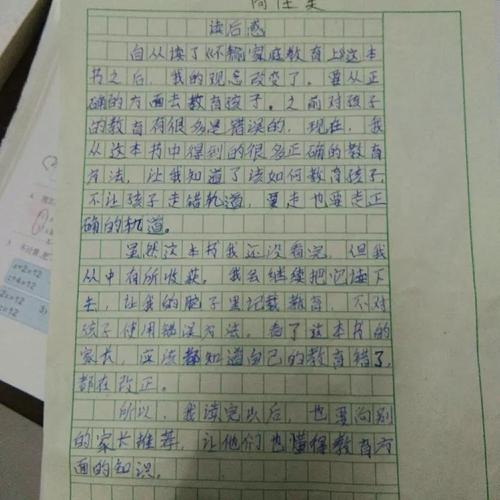 读后感
自从读了《不输家庭教育上》这本
书之后,我的观念改变了。要从正
确的方面去教育孩子。之前对孩子
的教育有很多是错误的,现在,我
从这本书中得到的很多正确的教育
方法,让我知道了该如何教育孩子,
不让孩子走错轨道,要走也要走正
确的轨道。
虽然这本书我还没看完,但我
从中有所收获。我会继续把它读下
去,让我的脑子里记载教育,不对
孩子使用错误方法。看了这本书的
家长,应该都知道自己的教育错了,
都在改正。
所以,我读完以后,也要向别
的家长推荐,让他们也懂得教育方
面的知识。